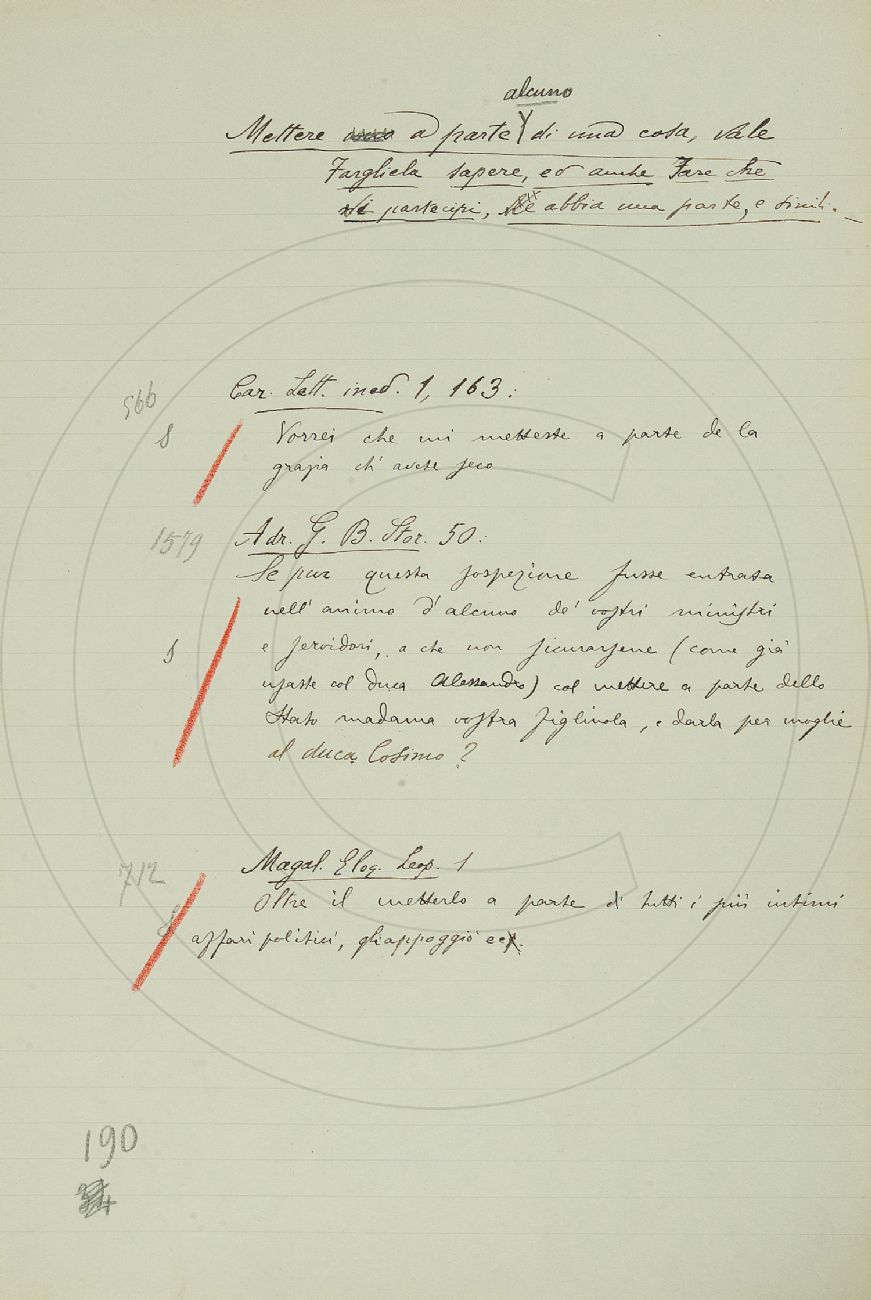 alcuno
Mettere a parte di una cosa, vale
Fargliela sapere, ed anche Fare che
vi partecipi, ne abbia una parte, e simili. _
566
Car. Lett. ined. 1, 163:
S
Vorrei che mi metteste a parte de la
grazia ch' avete seco
1579
Adr. G. B. Stor. 50:
Se pur questa sospezione fusse entrata
nell' animo d' alcuno de' vostri ministri
S
e servidori, a che non sicurarsene (come già
usaste col duca Alessandro) col mettere a parte dello
Stato madama vostra figliuola, e darla per moglie
al duca Cosimo?
712
Magal. Elog. Leop. 1
Oltre il metterlo a parte di tutti i più intimi
S
affari politici, gli appoggiò ec.
190